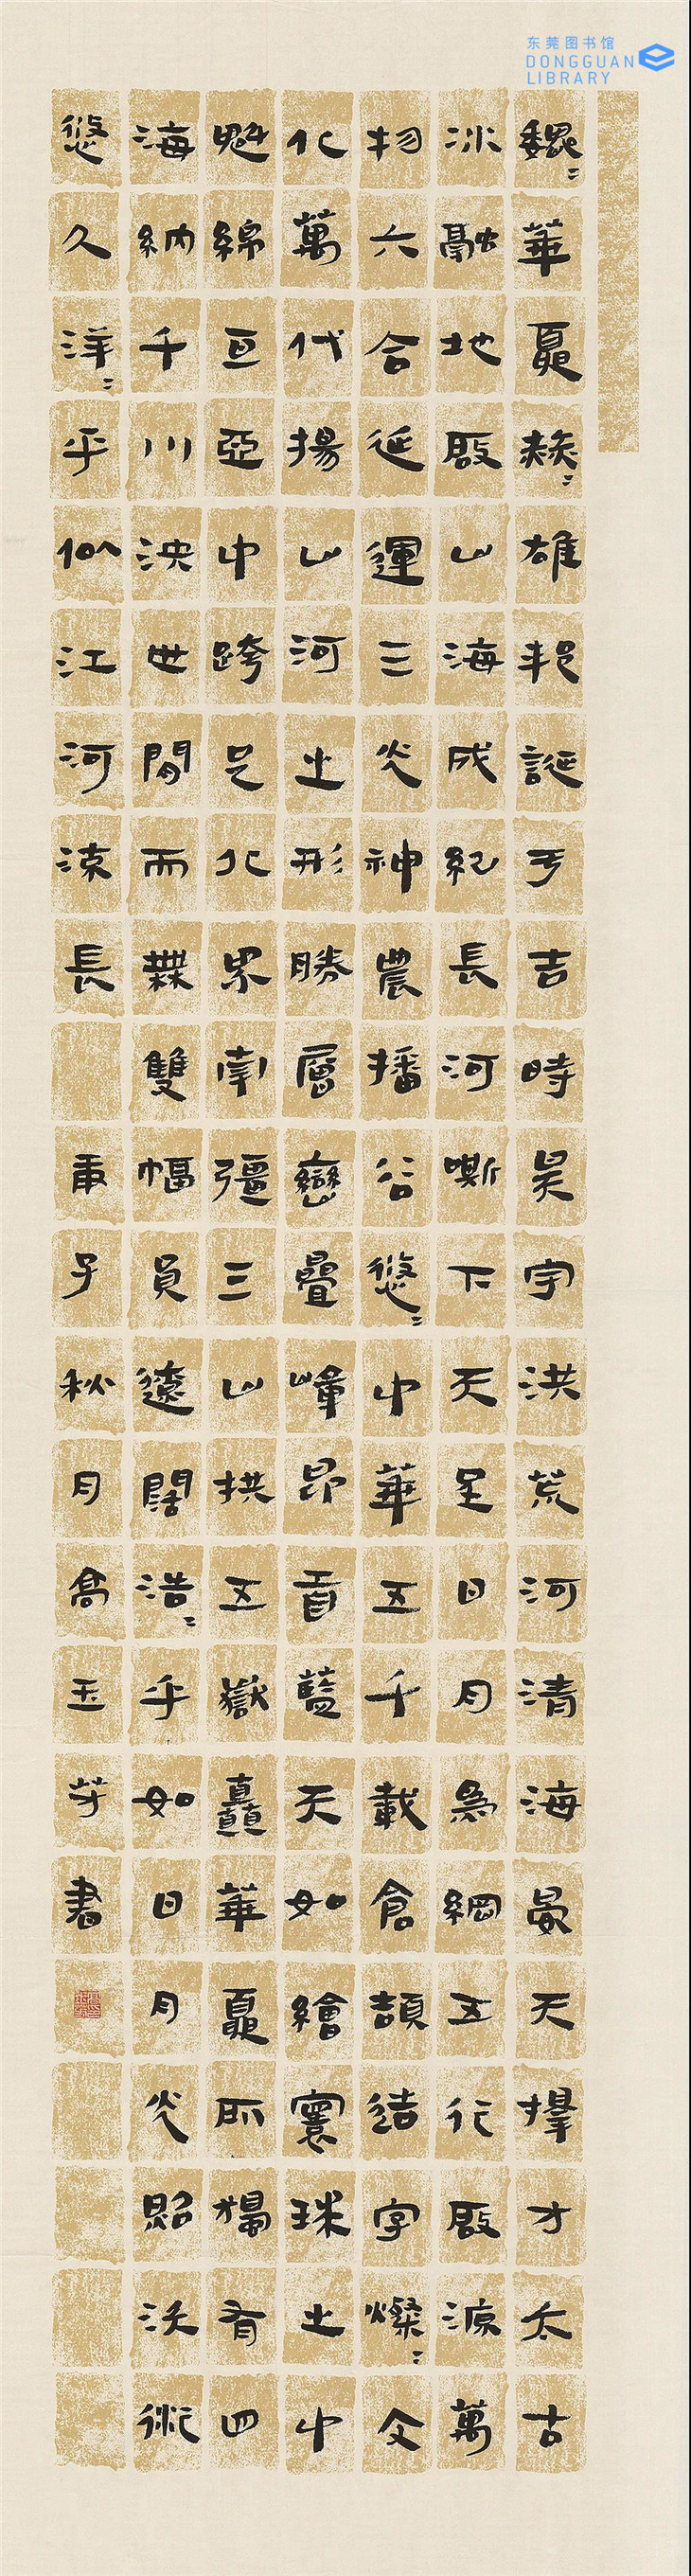 东莞图书馆
DONGGUAN
LIBRARY
魏〻華夏赫〻雄邦誕于吉時昊宇洪荒河清海晏天擇才太古
冰融地啟山海成紀長河嘶下天呈日月為綱五行啟源萬
物六合延運三光神農播谷悠〻中華五千載倉頡結字燦〻文
化萬代揚山河之形勝層巒疊嶂昂首藍天如繪寰球之中
魁綿亙亞中跨足北界南疆三山拱五嶽矗華夏所獨有四
海納千川泱世間而無雙幅員遼闊浩〻乎如日月光照沃術
悠久洋〻乎似江河源長 庚子秋月高玉芽書